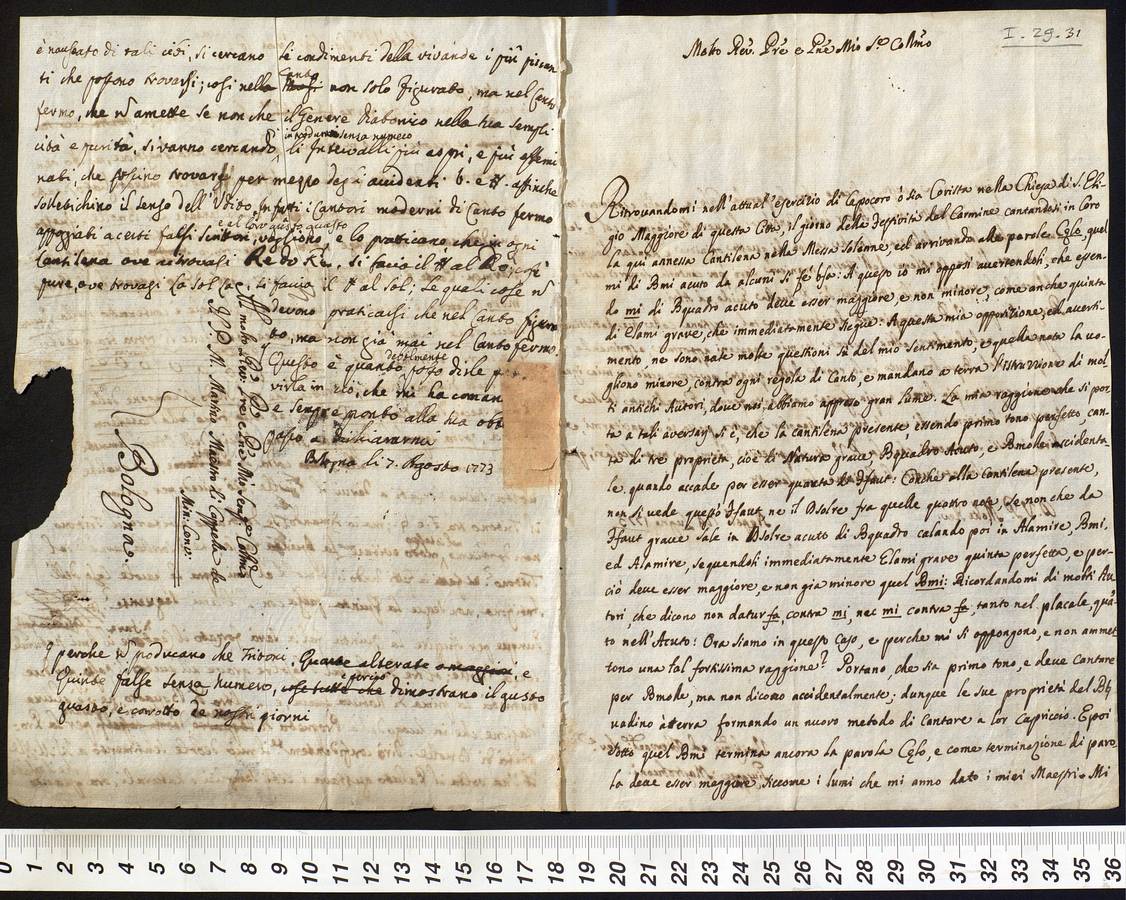 è nauseato di tali cibi, si cercano le condimenti della vivande i più pican
ti che possono trovarsi; così nella Canto non solo figurato, ma nel Canto
fermo, che non amette se non che il Genere diatonico nella sua sempli
cità e purità, si vanno cercando, introdurre senza numero li Intervalli più aspri, e più affemi
nati, che possino trovare per mezzo degl'accidenti b. e #. affinche
solletichino il senso dell'Udito. Infatti i Cantori moderni di Canto fermo
appoggiati a certi falsi e al loro gusto guasto vogliono, e lo praticano che in ogni
Cantilena ove ritrovasi Re do Re, si facia il # al Do; così
pure, ove trovasi La sol la, si facia il # al sol; Le quali cose non
devono praticarsi che nel Canto figura
to, ma non già mai nel Canto fermo.
Questo è quanto posso dirle
in ciò, che mi ha coman
e sempre pronto alla sua
passo a dichiararmi
Bologna li 7. Agosto 1773
Al molto Rev. Pre e Pre Mio Sempre Colmo
Il P. M. Martino Maestro di Cappella de
Min: Conv:
Bologna.
perche non producano che Tritoni, Quarte alterate o maggiori, e
Quinte false senza numero, così tutto che dimostrano il gusto
guasto, e corrotto de nostri giorni
I. 29. 31
Molto Rev. Pre e Pne Mio Sig. Colmo
Ritrovandomi nell'attual esercizio di Capocoro ò sia Corista nella Chiesa di S. Eli-
gio Maggiore di questa Città, il giorno della festività del Carmine cantandosi in Coro
la qui annessa Cantilena nella Messa Solenne, ed arrivando alle parole Cęlo, quel
mi di Bmi acuto da alcuni si fé bfa: A questo io mi opposi avertendoli, che essen-
do mi di Bquadro acuto deve esser maggiore, e non minore, come anche quinta
di Elami grave, che immediatamente siegue: A questa mia opposizione, ed averti-
mento ne sono nate molte questioni sù del mio sentimento, e quella nota la vo-
gliono minore, contra ogni regola di Canto, e mandano a terra l'istruzzione di mol
ti antichi Autori, dove noi abbiamo appreso gran lume. La mia raggione che si por
ta a tali aversarj si è, che la cantilena presente, essendo primo tono perfetto, can-
ta di tre proprietà, cioè di Natura grave, Bquadro Acuto, e Bmolle accidenta-
le, quando accade per esser quarta di Ffaut: Conche alla cantilena presente,
non si vede questo Ffaut ne il Dsolre fra quelle quattro note, se non che da
Ffaut grave sale in Dsolre acuto di Bquadro calando poi in Alamire, Bmi,
ed Alamire, sequendosi immediatamente Elami grave quinta perfetta, e per-
ciò deve esser maggiore, e non già minore quel Bmi: Ricordandomi di molti Au
tori che dicono non datur fa contra mi, nec mi contra fa, tanto nel placale, quã-
to nell'Acuto: Ora siamo in questo Caso, e perche mi si oppongono, e non ammet
tono una tal fortissima raggione? Portano, che sia primo tono, e deve cantare
per Bmolle, ma non dicono accidentalmente; dunque le sue proprietà del B♮
vadino à terra formando un nuovo metodo di Cantare a lor capriccio. E poi
sotto quel Bmi termina ancora la parola Cęlo, e come terminazione di paro
la deve esser maggiore, siccome i lumi che mi anno dato i miei Maestri. Mi